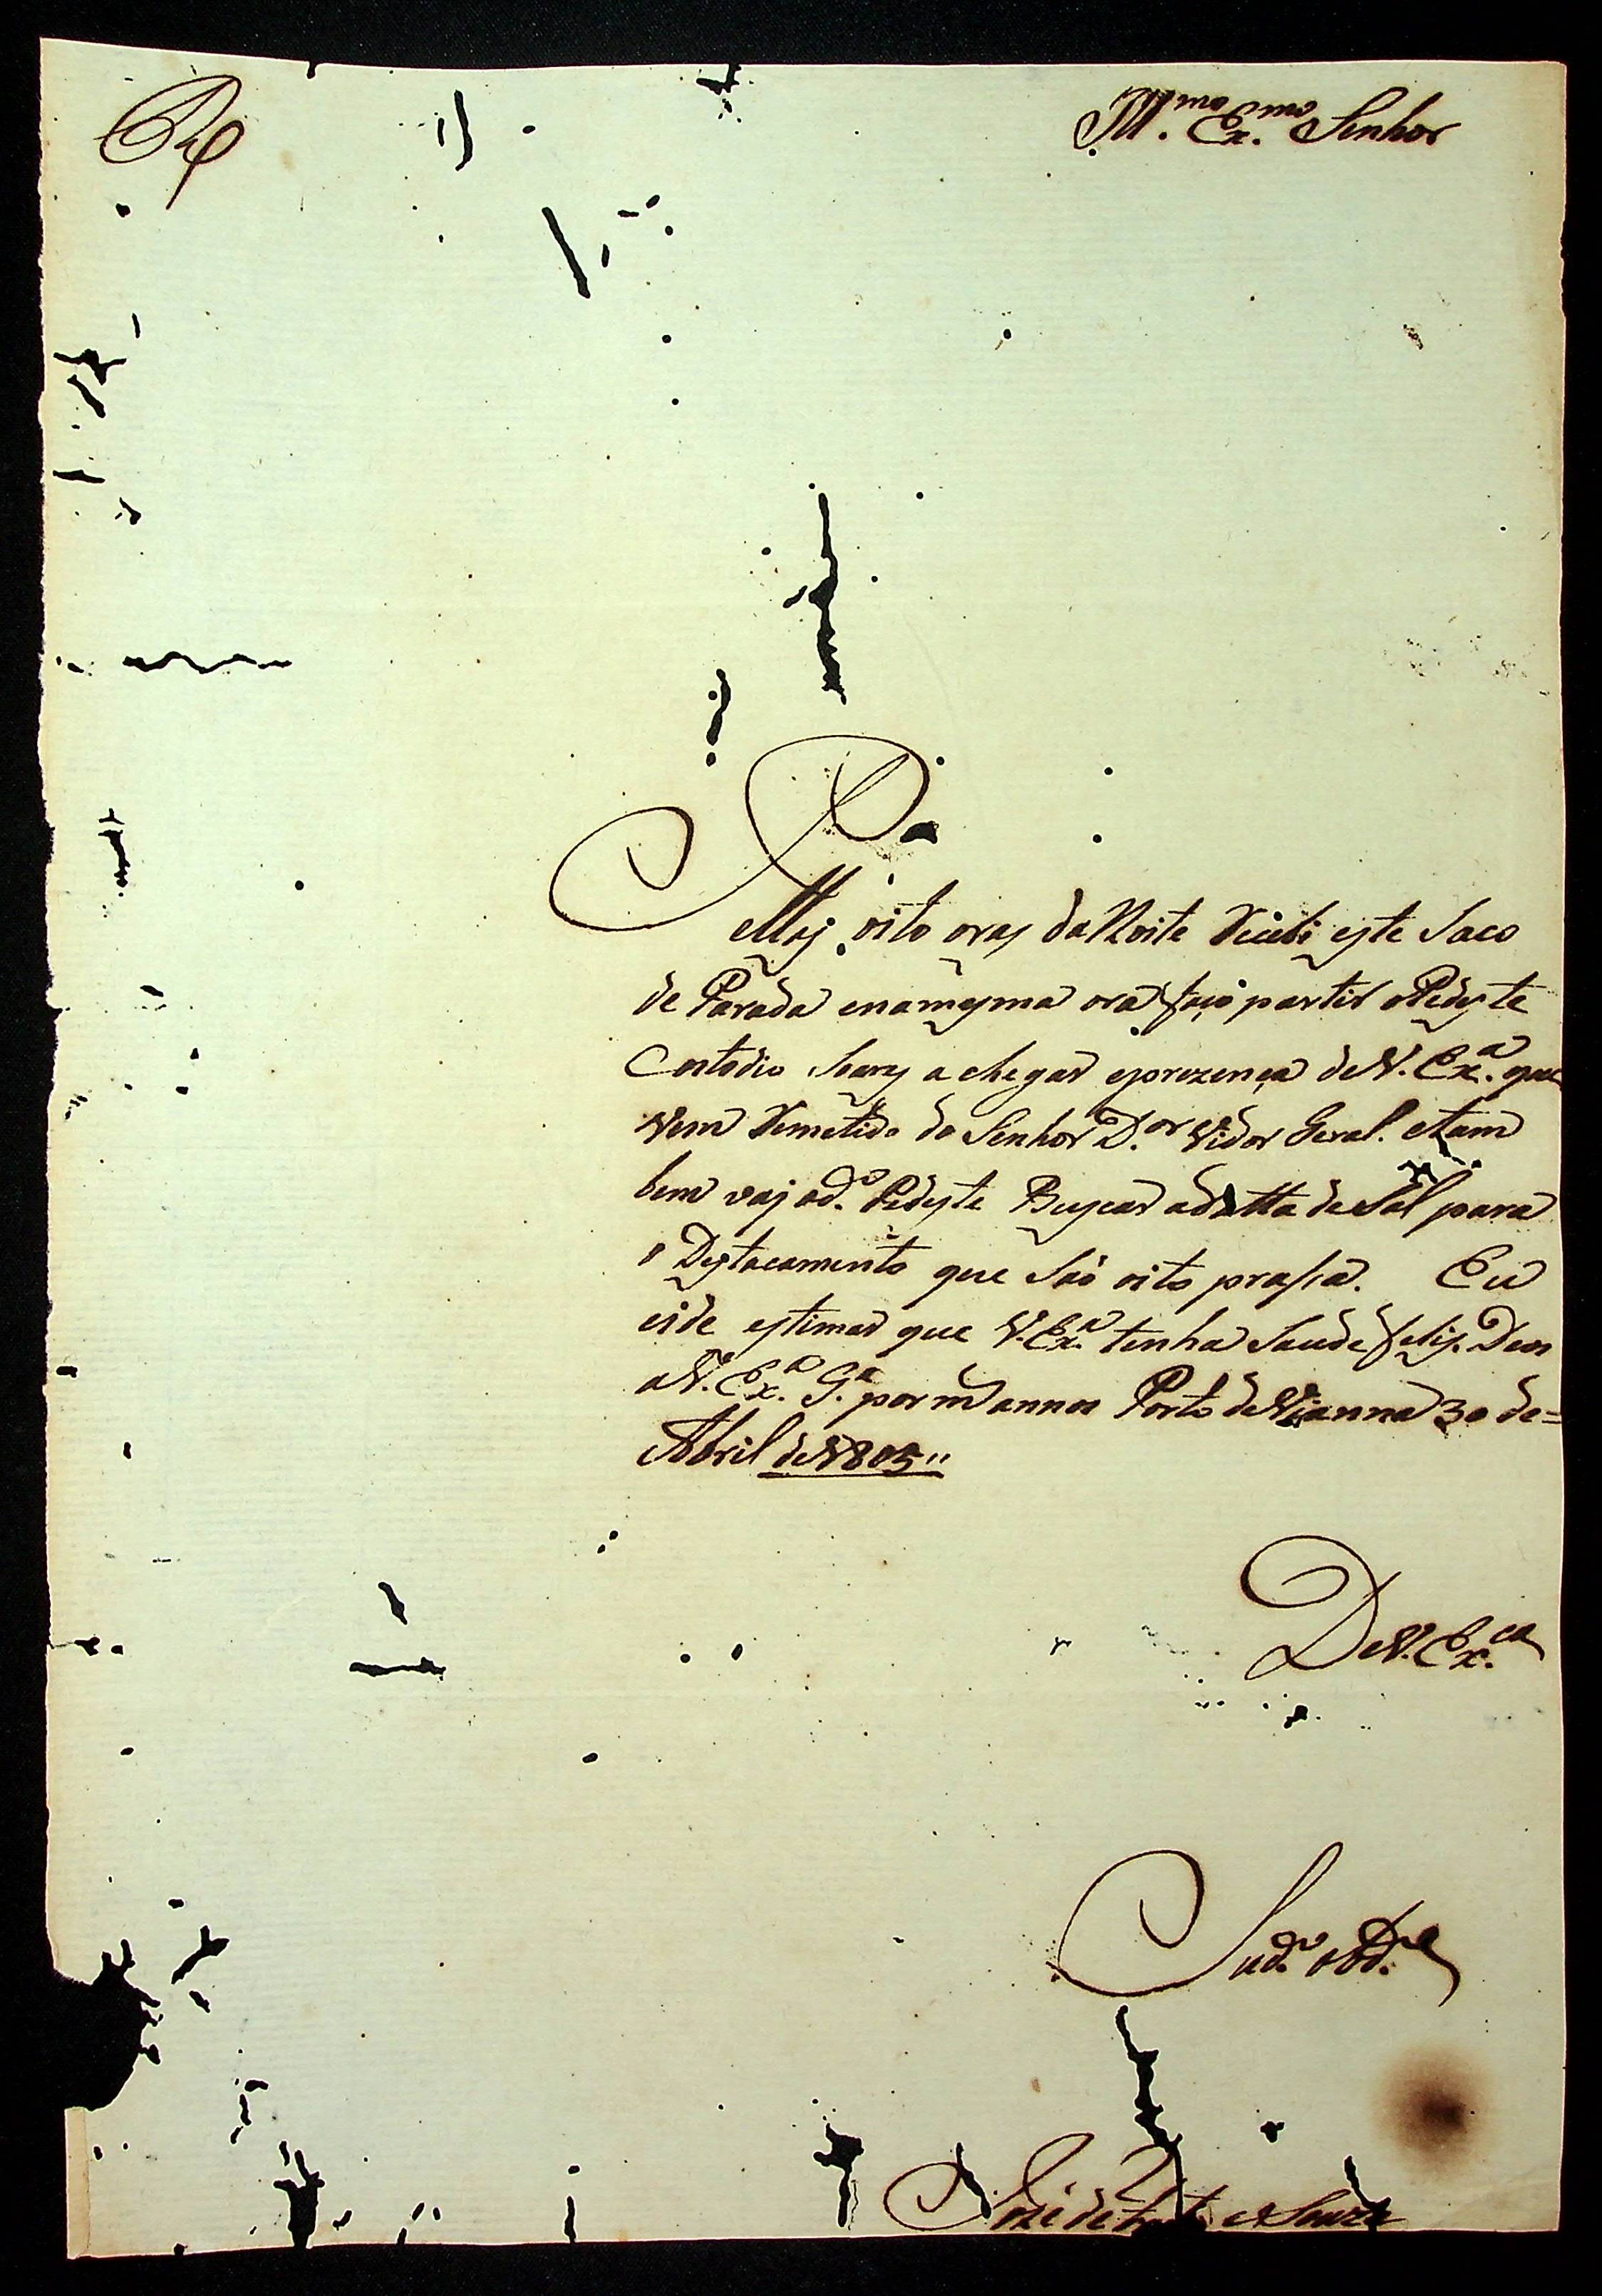 Ill.mo Ex.mo Senhor
Aos oito oras da Noite Recebi este Saco
de Parada enamesma ora faço partir oPedeste
Costodio Soares a chegar eprezença deV. Ex.a que
vem Remetido do Senhor D.or Vidor Geral. etam
bem vaj od.o Pedeste Buscar adatta de Sal para
o Destacamento que São oito prasia. Eu
eide estimar que V. Ex.a tenha Saude felis. Deos
aV. Ex.a G.e por m annos Porto deVianna 30 de=
Abril de1805"
DeV. Ex.ca
Sud.o obd.e
Jozé de Souza